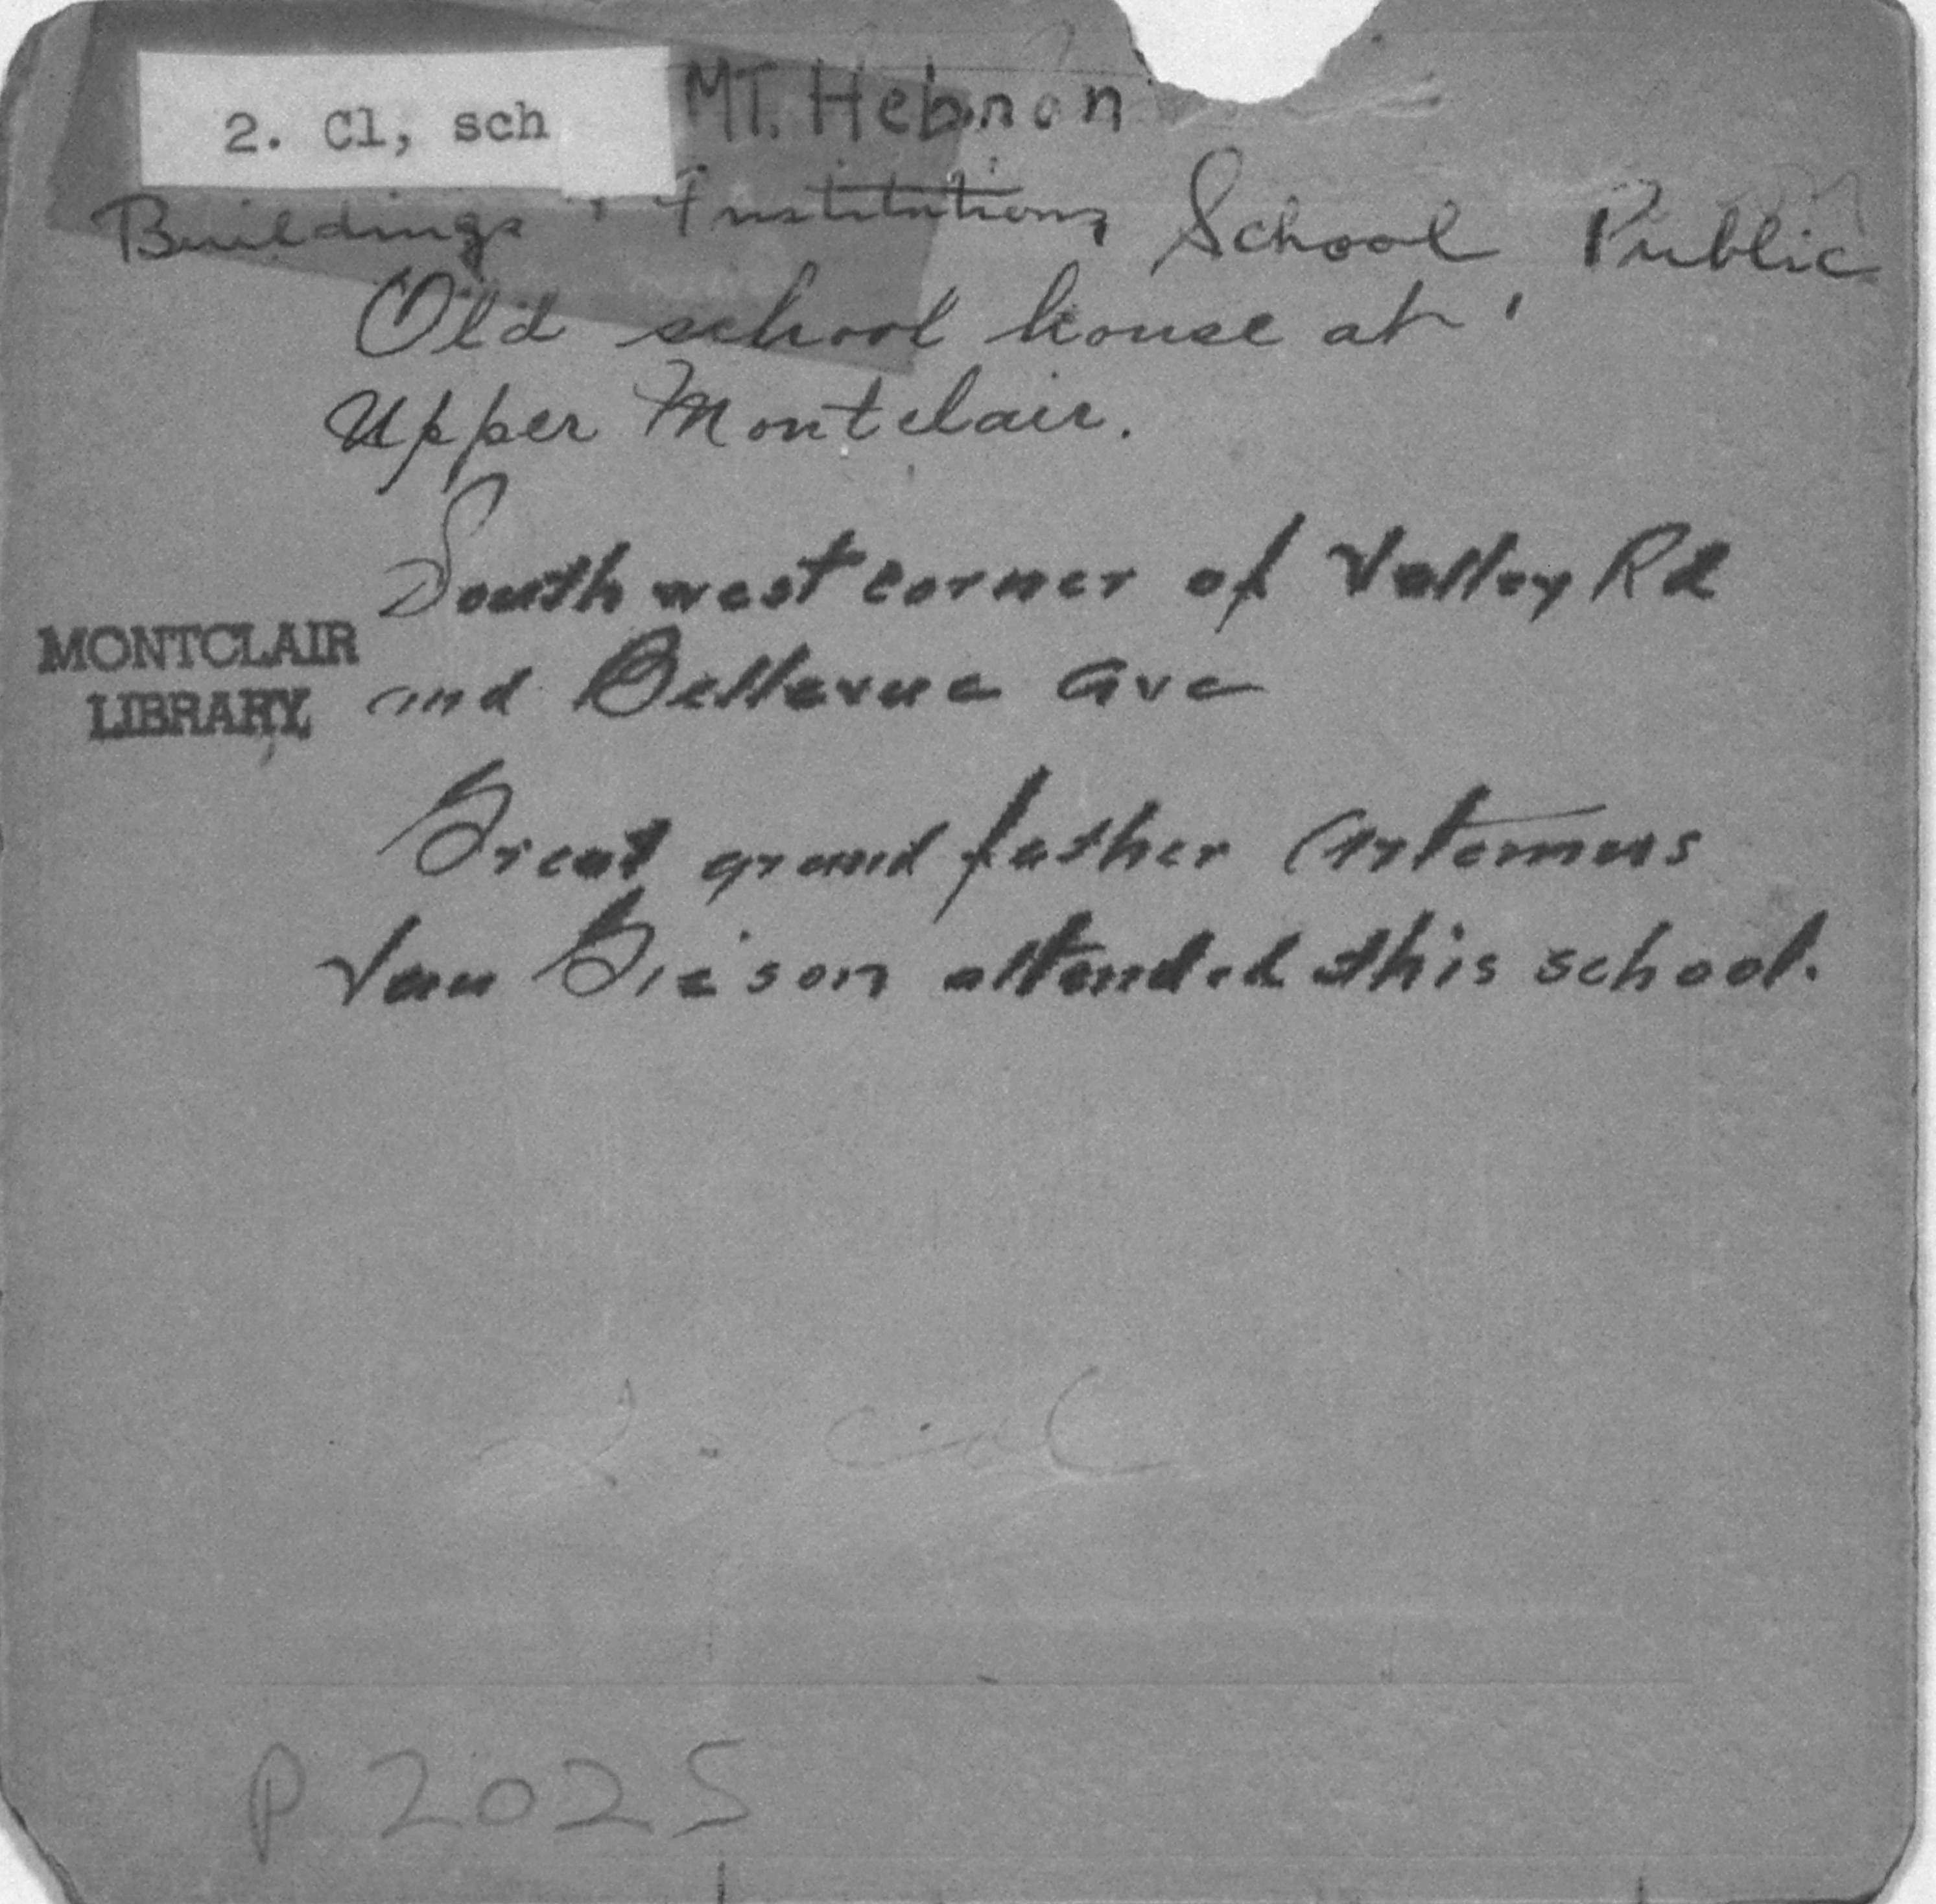 2. Cl, sch
MT. Hebron
Buildings, Institutions, School Public
Old school house at
Upper Montclair.
South west corner of Valley Rd
and Bellevue Ave
MONTCLAIR
LIBRARY
Great grand father Artemus
Van Gieson attended this school.
P 2025